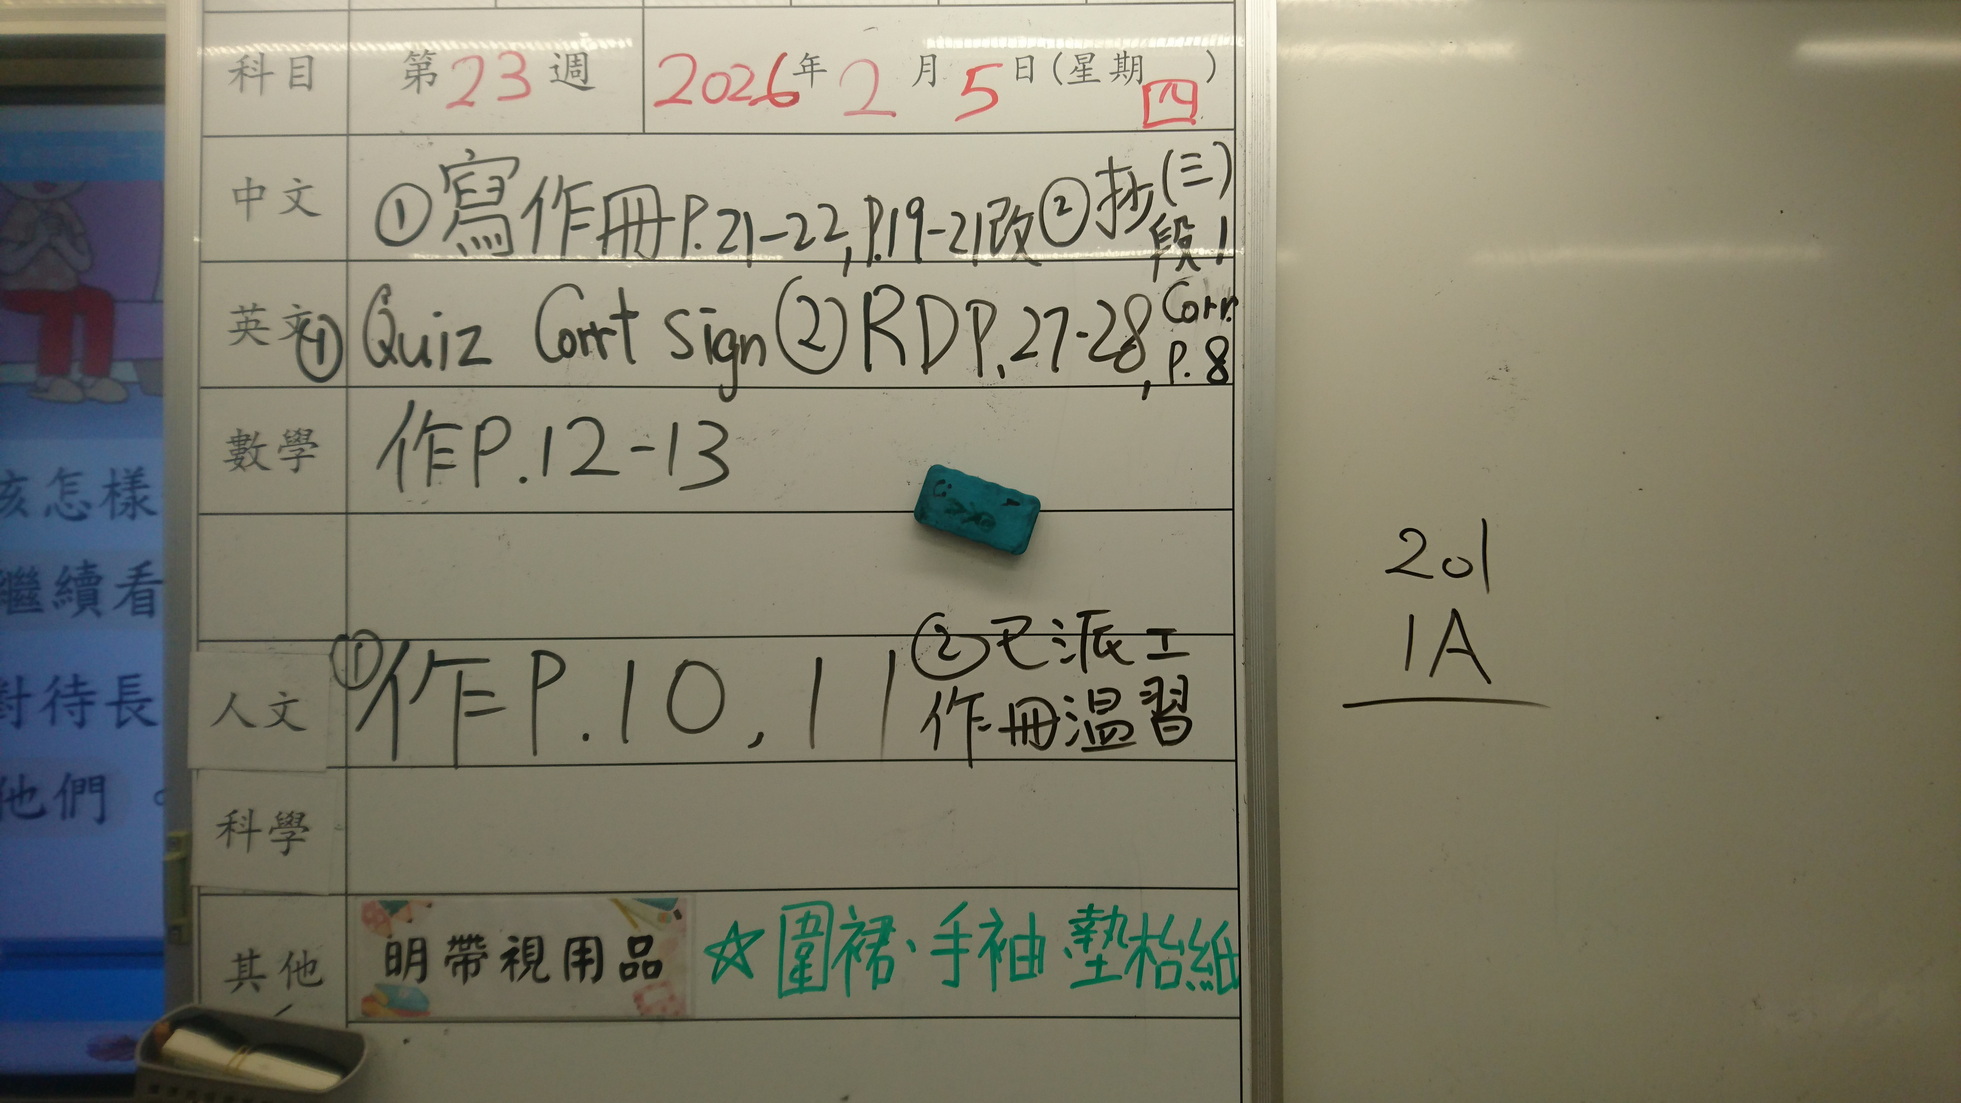 科目 第23週 2026年2月5日(星期四)
中文 ①寫作冊P.21-22,P.19-21改②抄(三)段1
英文 ①Quiz Corrt sign②RDP.27-28,Corr. P.8
數學 作P.12-13
人文 ①作P.10,11 ②已派工作冊温習
科學
其他 明帶視用品 ☆圍裙、手袖 墊枱紙
201
1A
該怎樣
繼續看
對待長
他們。